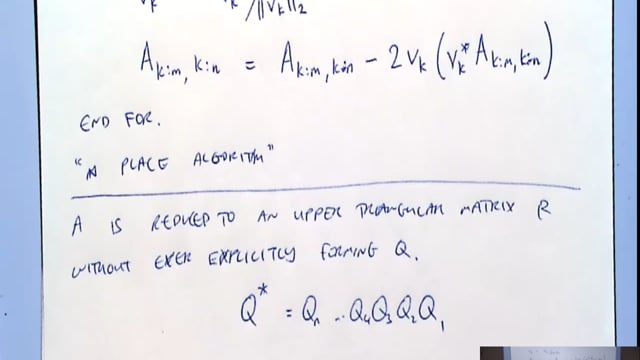 v_k / ||v_k||_2
A_{k:m, k:n} = A_{k:m, k:n} - 2v_k (v_k^* A_{k:m, k:n})
END FOR.
"IN PLACE ALGORITHM"
A IS REDUCED TO AN UPPER TRIANGULAR MATRIX R
WITHOUT EVER EXPLICITLY FORMING Q.
Q^* = Q_n ... Q_4 Q_3 Q_2 Q_1